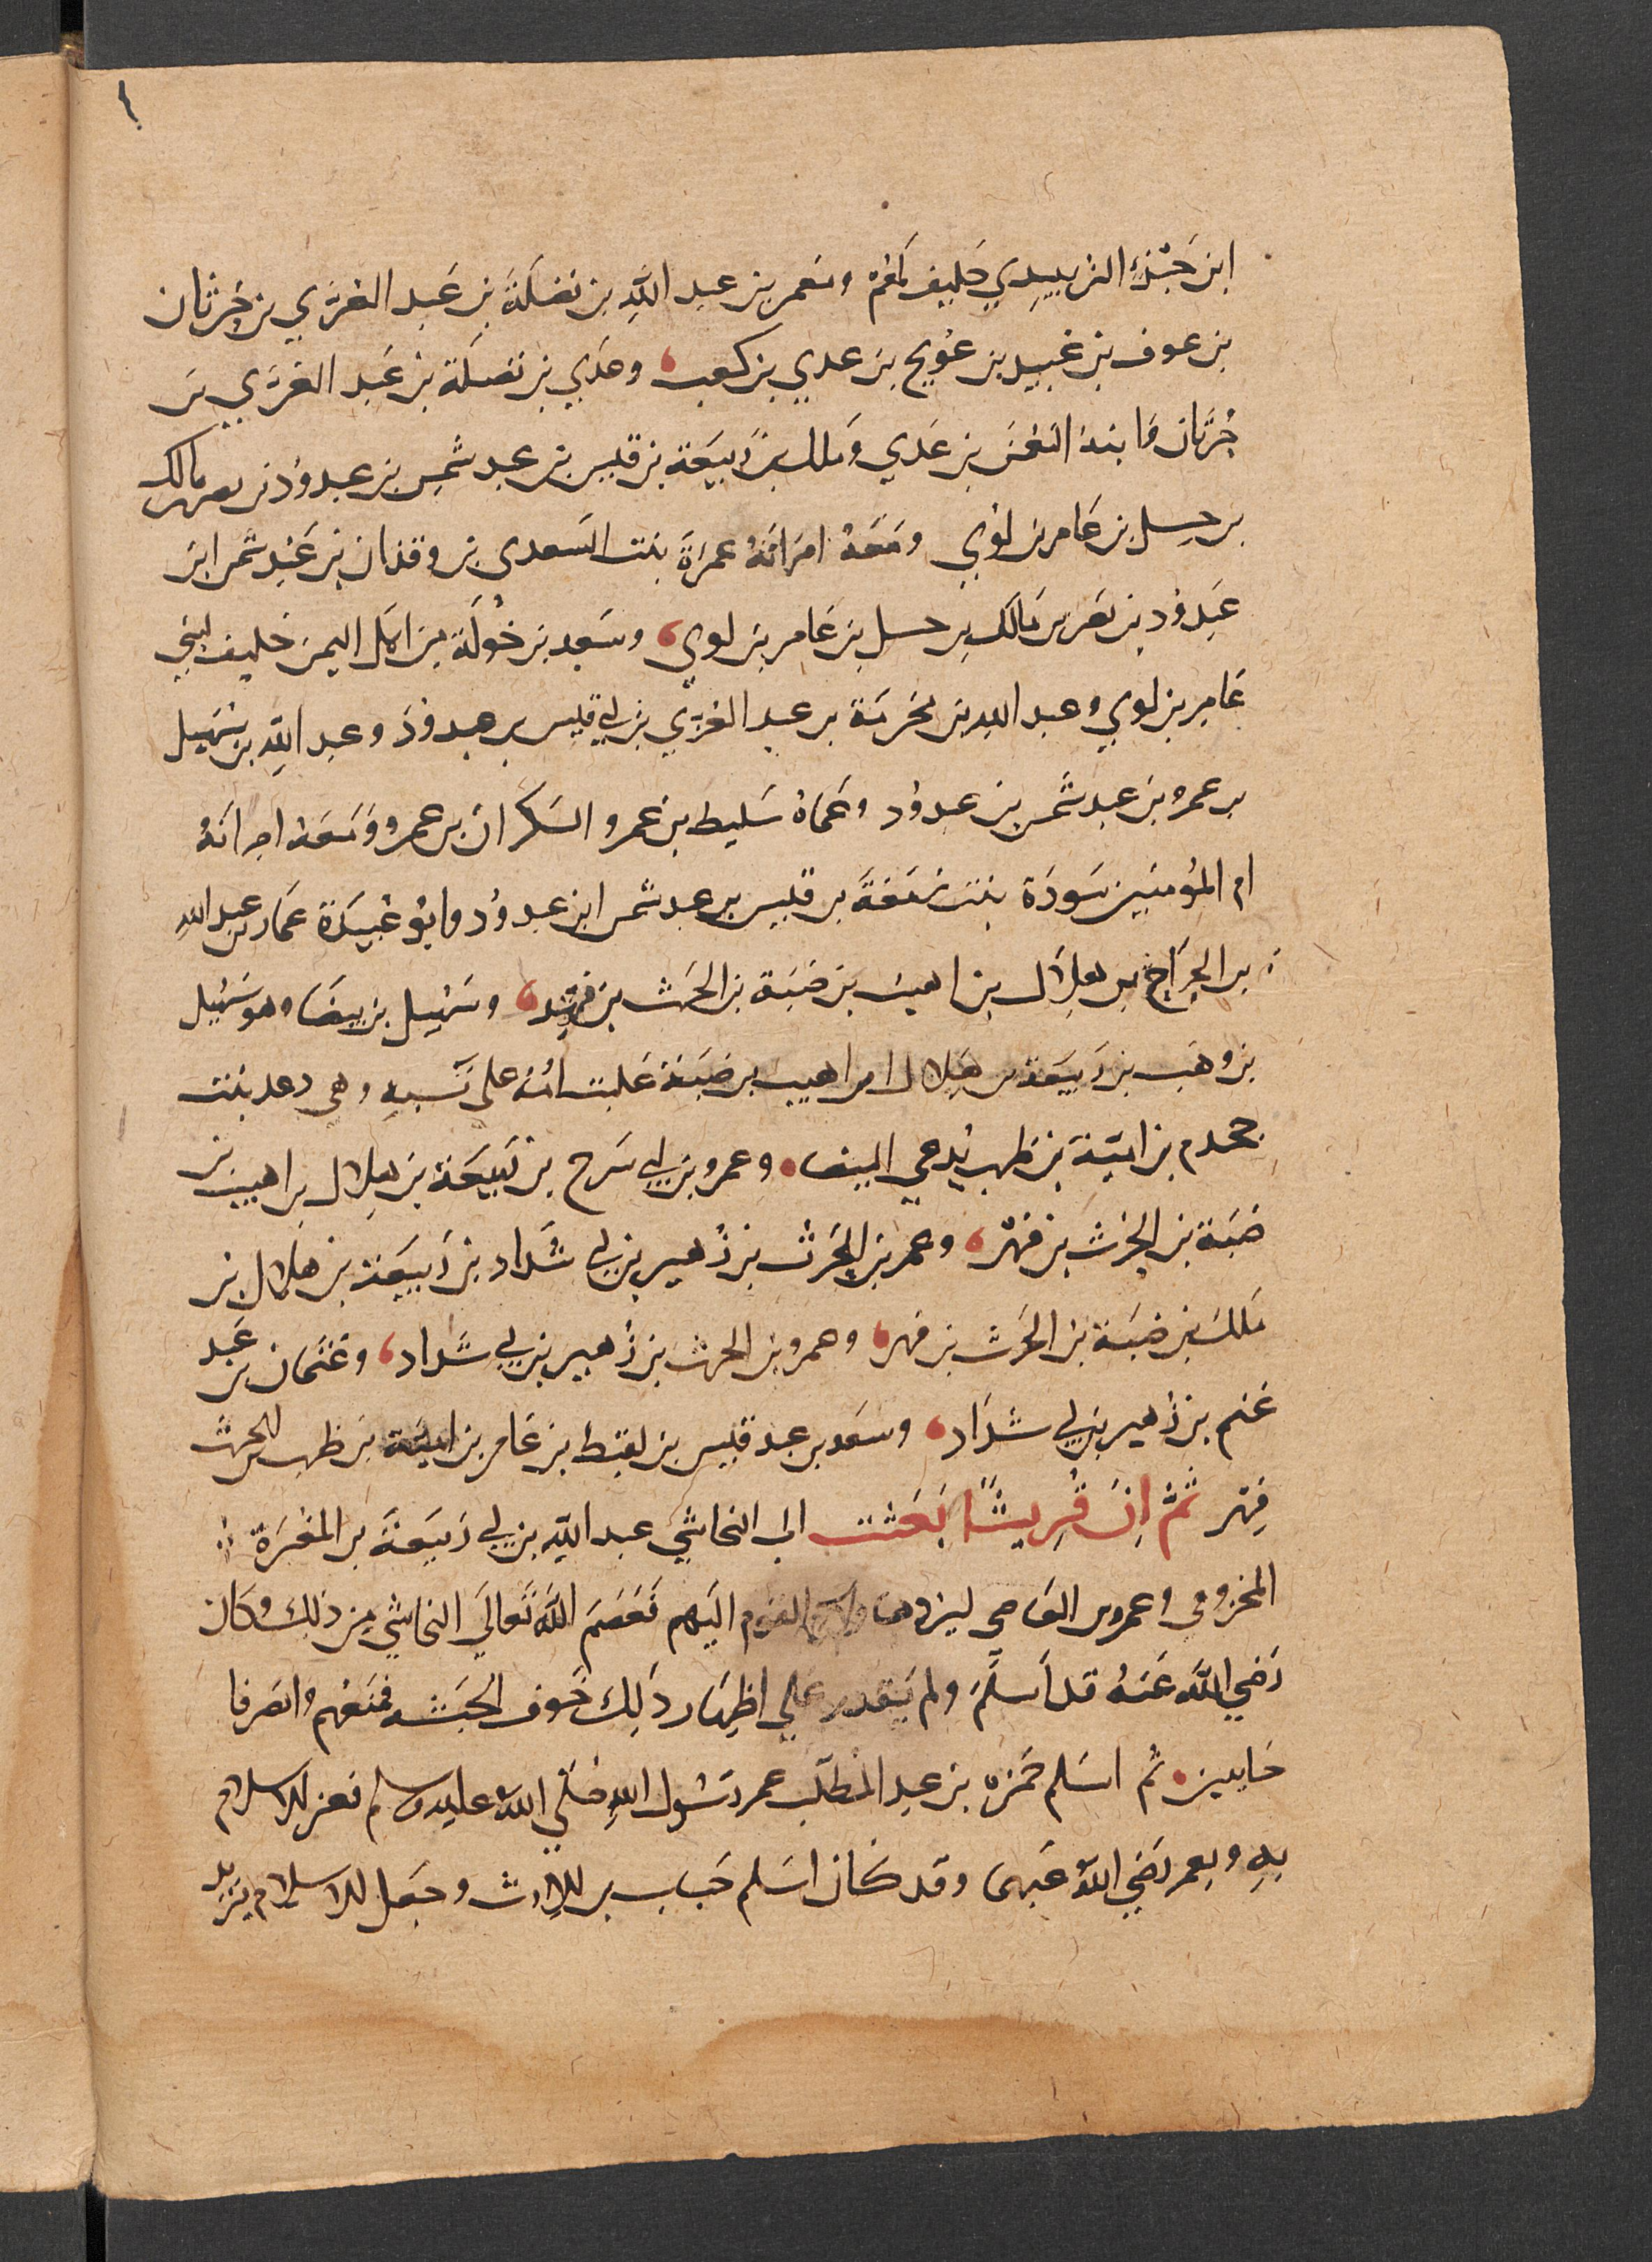 ١
ابن جَزْءٍ الزبيدي حليف لهم ومعمر بن عبد الله بن نضلة بن عبد العزي بن حُرثان
بن عوف بن عُبيد بن عُويج بن عدي بن كعب، وعَدي بن نضلة بن عَبد العزّي بن
حُرثان وابنه النعمٰن بن عَدي ومٰلك بن رَبيعَة بن قيس بن عبد شمس بن عبد وُد بن نصر بن مالك
بن حسل بن عَامر بن لؤي ومَعَهُ امرَاتهُ عمرَةَ بنت السَعدي بن وقدان بن عَبد شمس ابن
عَبد وُد بن نصر بن مَالك بن حسل بن عَامر بن لوي، وسَعد بن خُولَة من اهل اليمن حليف لبني
عَامر بن لوي وعبد الله بن مخرمَة بن عبد العزي بن ابي قيس بن عبد وُدّ وعبد الله بن سهيل
بن عمرو بن عبد شمس بن عبد وُد وعَمَّاهُ سَليط بن عمرو السَكران بن عمرو ومَعَهُ امراتهُ
ام المُومنين سَودَة بنت زمعَةَ بن قيس بن عبد شمس ابن عبد وُد وابو عُبيدَة عَامر بن عبد الله
بن الجراح بن هلال بن اهيب بن ضَبَة بن الحٰرث بن فهر، وسُهيل بن بيضَا وهو سُهيل
بن وهَب بن رَبيعَة بن هلال بن اهيب بن ضَبَة غلبت امُهُ على نسبهِ وهي دعد بنت
جحدم بن اميّة بن ظرب يُدعي البيضا. وعمرو بن ابي سَرح بن ربيعَة بن هلال بن اهيب بن
ضَبة بن الحٰرث بن فهر، وعمر بن الحٰرث بن زُهير بن ابي شَداد بن رَبيعَة بن هلال بن
مٰلك بن ضبَة بن الحٰرث بن فهر، وعمرو بن الحرث بن زُهير بن ابي شَداد، وعُثمان بن عَبد
غَنم بن زُهير بن ابي شدَاد، وسَعد بن عبد قيس بن لقيط بن عَامر بن اميَّة بن ظرب الحرث
فِهر ثُمَّ اِنَ قُريشًا بَعَثت الى النجاشيّ عبد الله بن ابي رَبيعَة بن المغيرَة
المخزومي وعمرو بن العَاصي ليردهما القوم اليَهم فعَصَم اللَّه تَعالَي النجاشي من ذلك وكان
رَضي اللَّه عَنهُ قد اَسلَم ولم يَقدر علي اظهَار ذَلك خَوف الحَبشه فمنَعهُم وانصرفا
خايبين. ثم اسَلم حَمزه بن عبد المطلّب عم رسُول اللهِ صلي اللَّه عليه وسلم فعز الاسلام
بهِ وبِعمر رَضي اللَّه عَنهما وقد كان اسَلم خَباب بن الارث وجعَل الاسلام يَزيد